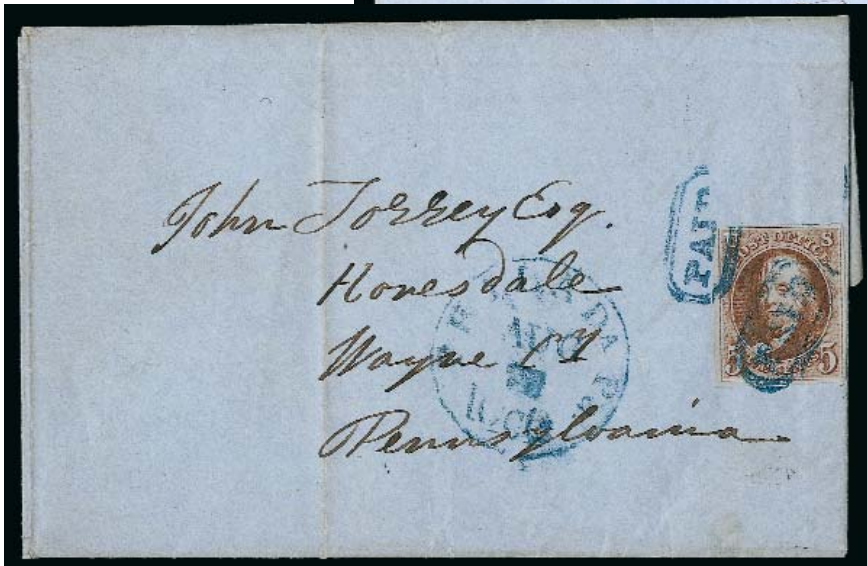 John Torrey Esq.
Honesdale
Wayne CY
Pennsylvania
PAID
POST OFFICE
5 5
AUG